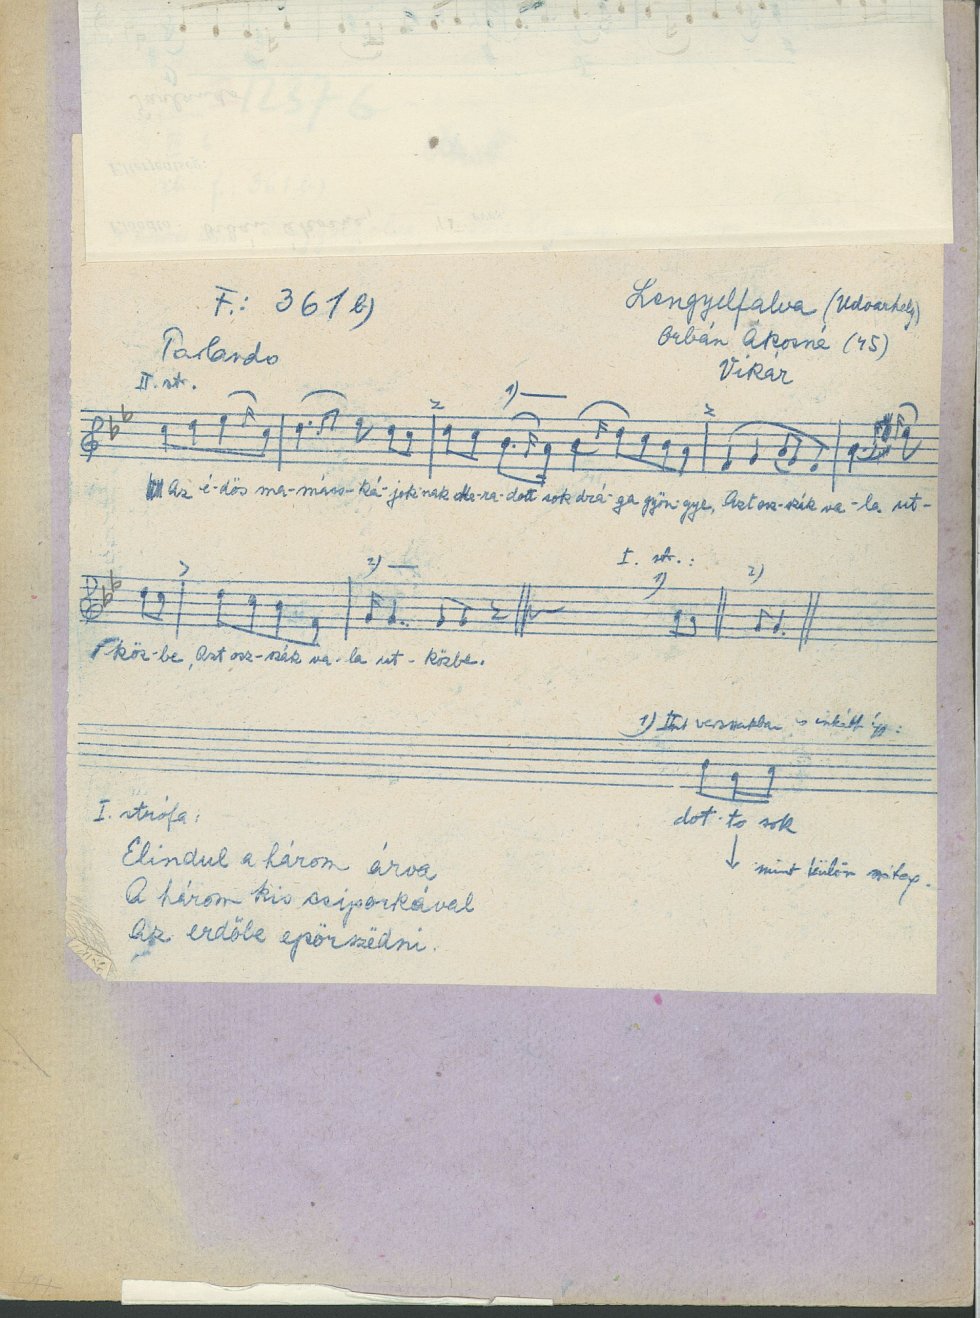 F.: 361 b)
Lengyelfalva (Udvarhely)
Orbán Ákosné (45)
Vikár
Parlando
II. str.
1)
Az é-dös ma-mács-ká-jok-nak Ma-ra-dott sok drá-ga gyön-gye, Azt osz-szák va-la ut-
2)
I. str.:
1)
2)
köz-be, Azt osz-szák va-la ut-közbe.
1) versszakban is inkább így:
dot-to sok
mint külön
I. strófa:
Elindul a három árva
A három kis csiporkával
Az erdőbe epörszëdni.